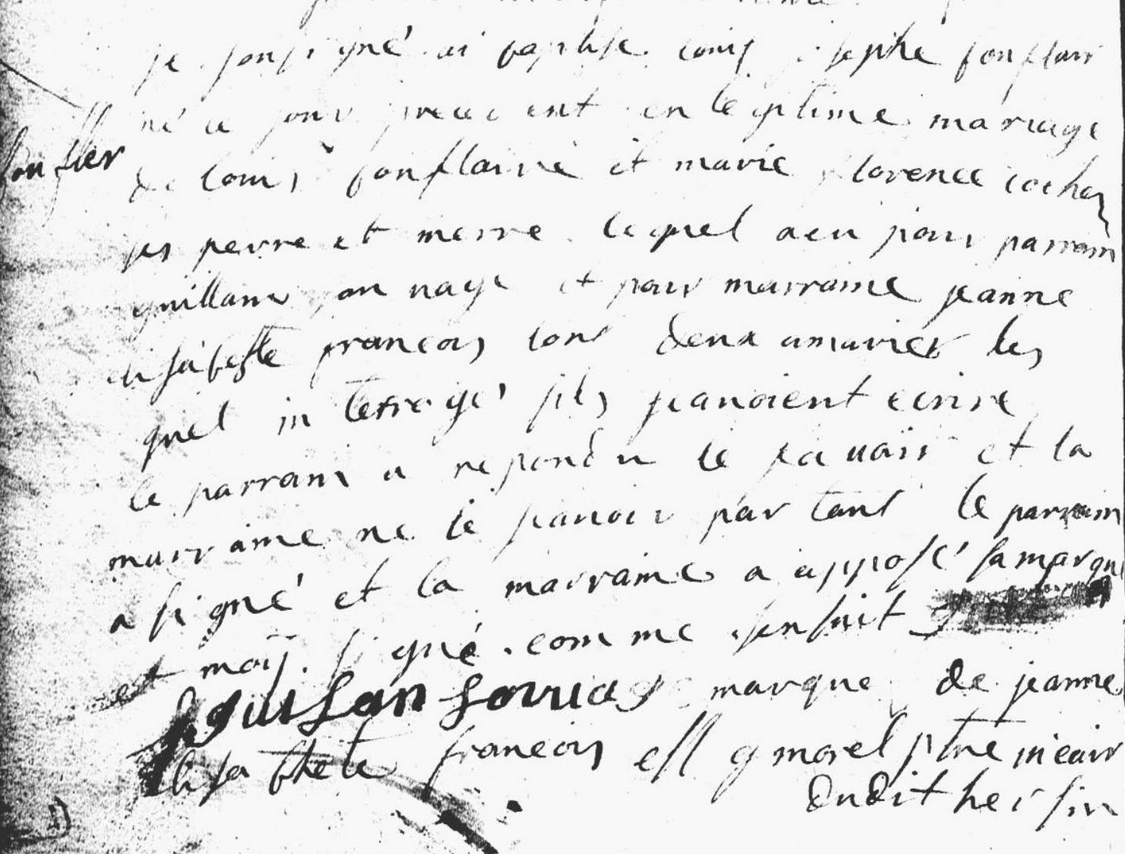 je sousigné ai baptisé louis josephe fonflair
né ce jour precedent en legitime mariage
de louis fonflaire et marie florence cochez
ses peirre et merre lequel a eu pour parrain
guillame et pour marraine jeanne
francois tous deux amarier les
quel interogé sils scavoient ecrire
le parrain a repondu le scavair et la
marraine ne le scavoir partant le parrain
a signé et la marraine a apposé sa marque
et moij signé comme sensuit
marque de jeanne
francois ell g morel ptre vicair
dudit hersin